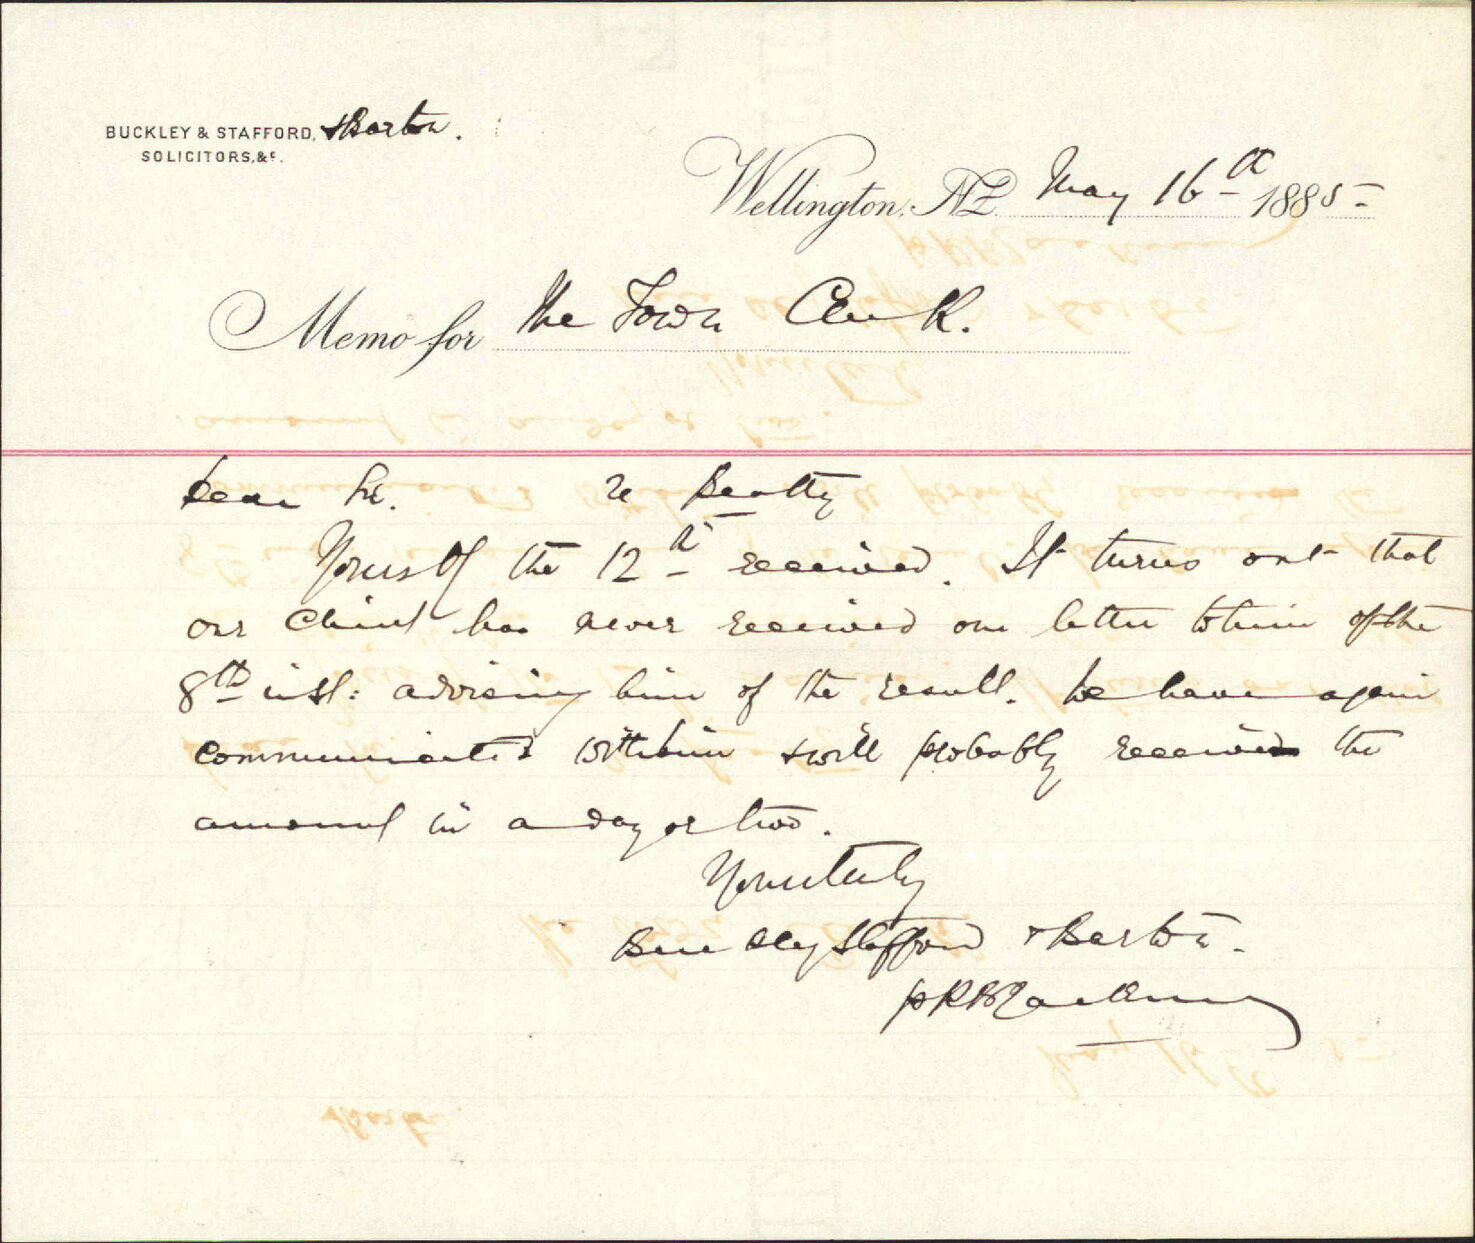 BUCKLEY & STAFFORD, & Barton.
SOLICITORS, &c.
Wellington, NZ May 16th 1885
Memo for The Town Clerk.
Dear Sir. re Beatty
Yours of the 12th received. It turns out that
our Client has never received our letter to him of the
8th inst: advising him of the result. We have again
communicated with him & will probably receive the
amount in a day or two.
Yours truly
Buckley Stafford & Barton.
p